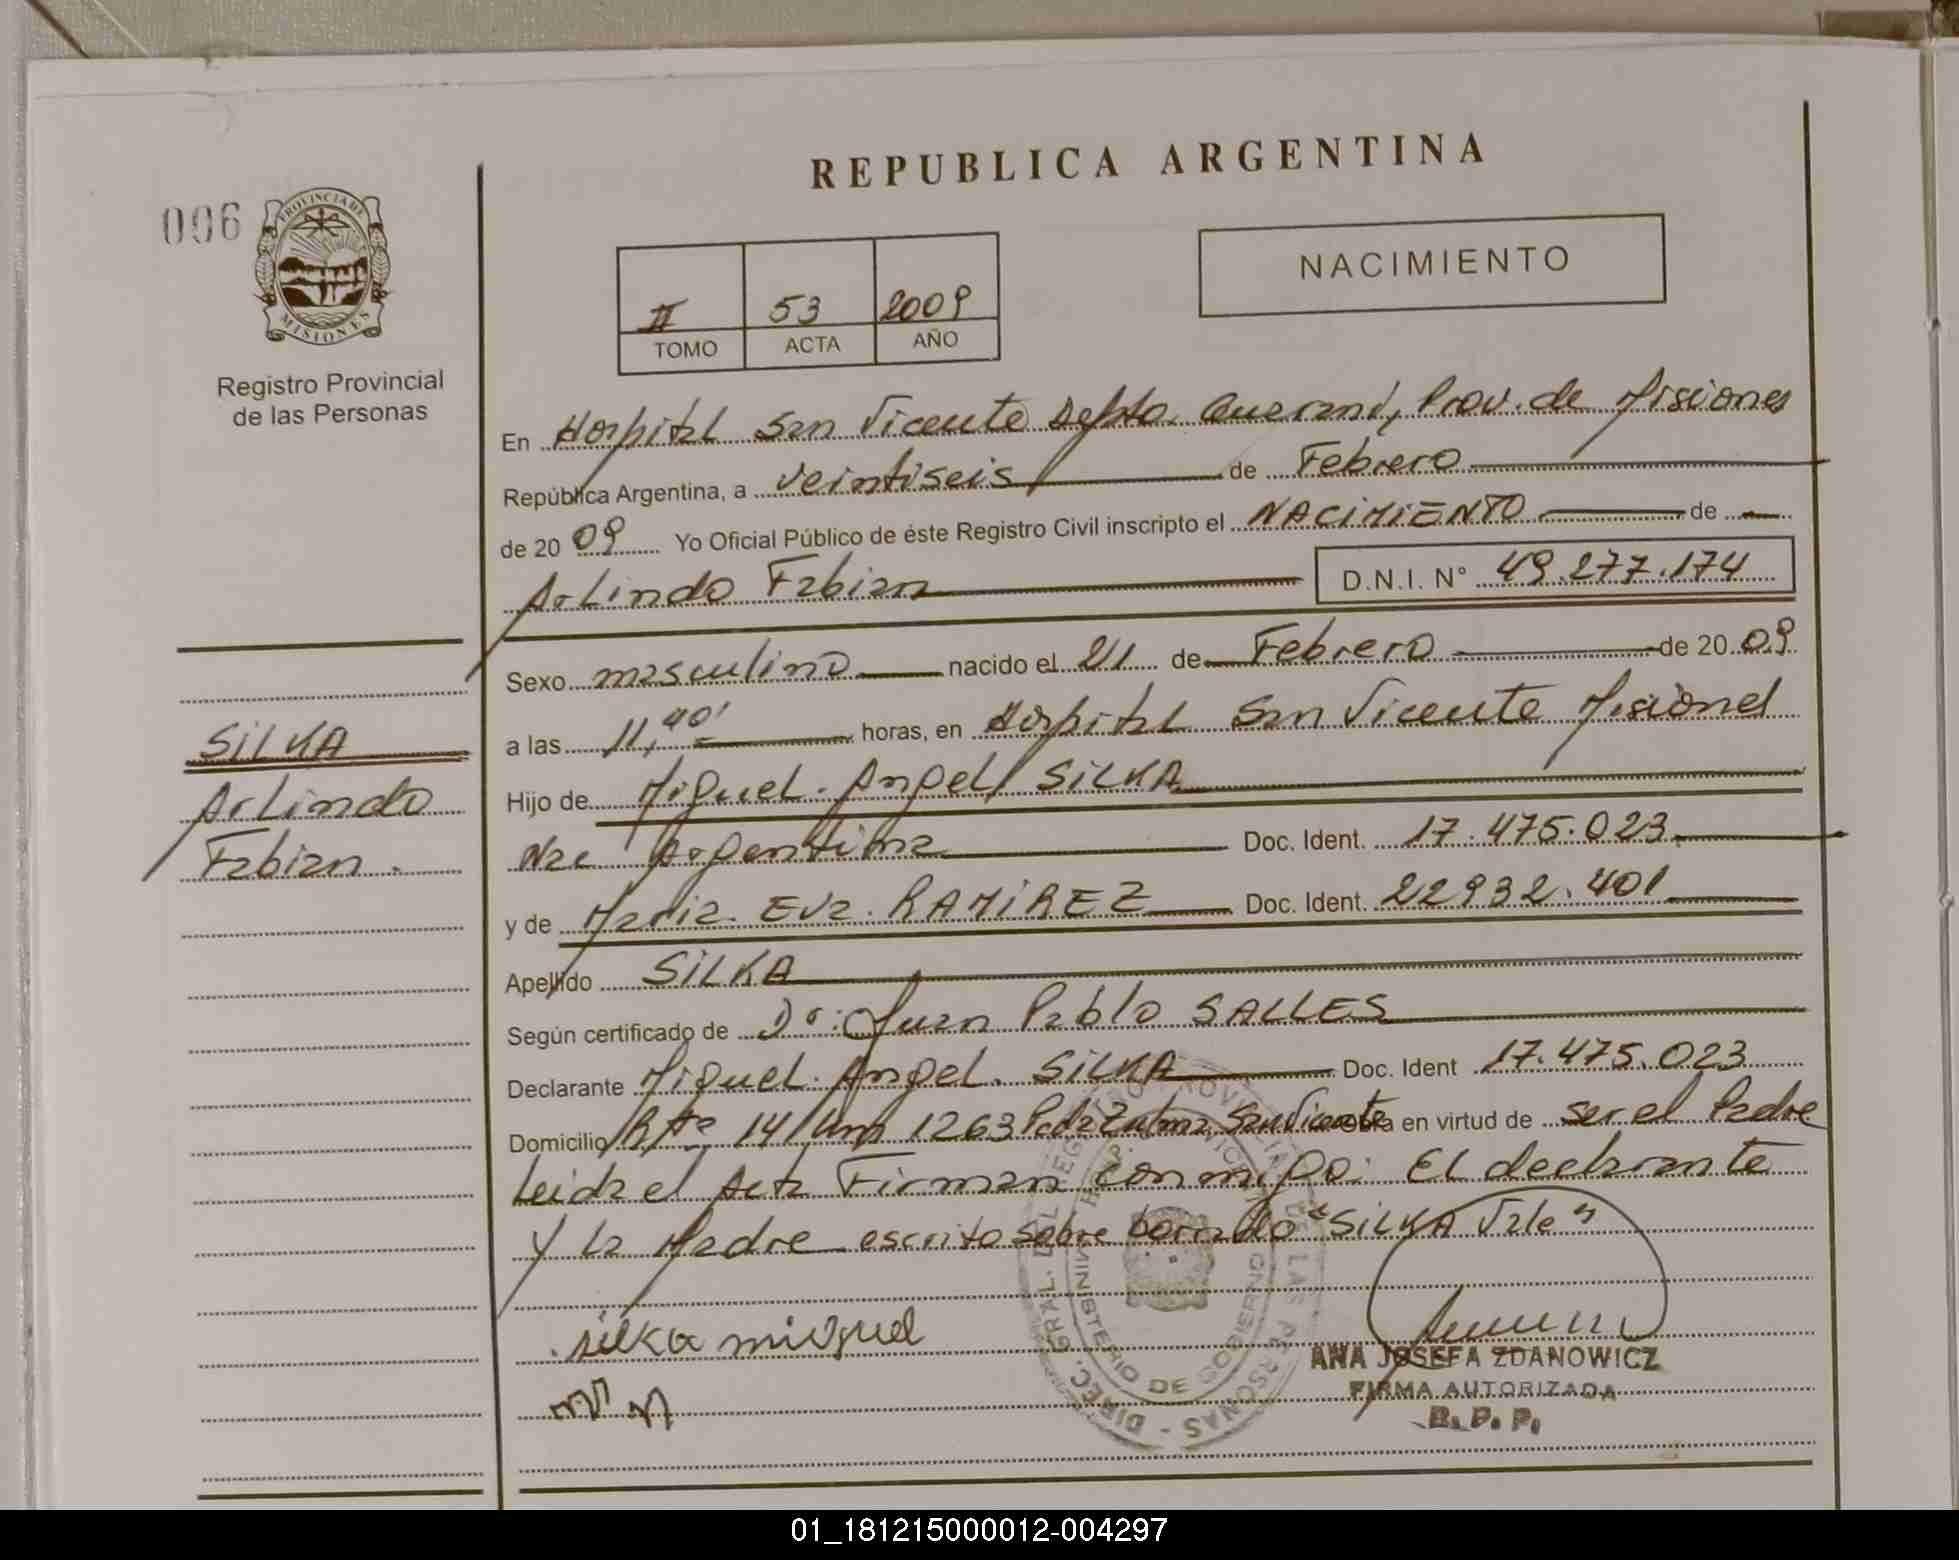 REPUBLICA ARGENTINA
006
PROVINCIA DE
MISIONES
Registro Provincial
de las Personas
NACIMIENTO
II 53 2009
TOMO ACTA AÑO
En Hospital San Vicente Depto. Guarani, Prov. de Misiones
República Argentina, a veintiseis de Febrero
de 20 09 Yo Oficial Público de éste Registro Civil inscripto el NACIMIENTO de
Arlindo Fabian D.N.I. N° 49.277.174
Sexo masculino nacido el 21 de Febrero de 20 09
a las 11,40' horas, en Hospital San Vicente Misiones
Hijo de Miguel Angel SILKA
Nac Argentina Doc. Ident. 17.475.023
y de Maria Eva RAMIREZ Doc. Ident. 22932.401
Apellido SILKA
Según certificado de Dr: Juan Pablo SALLES
Declarante Miguel Angel SILKA Doc. Ident 17.475.023
Domicilio Rta 14 Km 1263 Pda Zulma San Vicente Obra en virtud de ser el Padre
Leida el Acta Firman conmigo: El declarante
y la Madre escrito sobre borrado "SILKA Vale"
SILKA
Arlindo
Fabian.
silka miguel
DIREC. GRAL. DEL REGISTRO PROVINCIAL DE LAS PERSONAS
MINISTERIO DE GOBIERNO
ANA JOSEFA ZDANOWICZ
FIRMA AUTORIZADA
R. P. P.
01_181215000012-004297